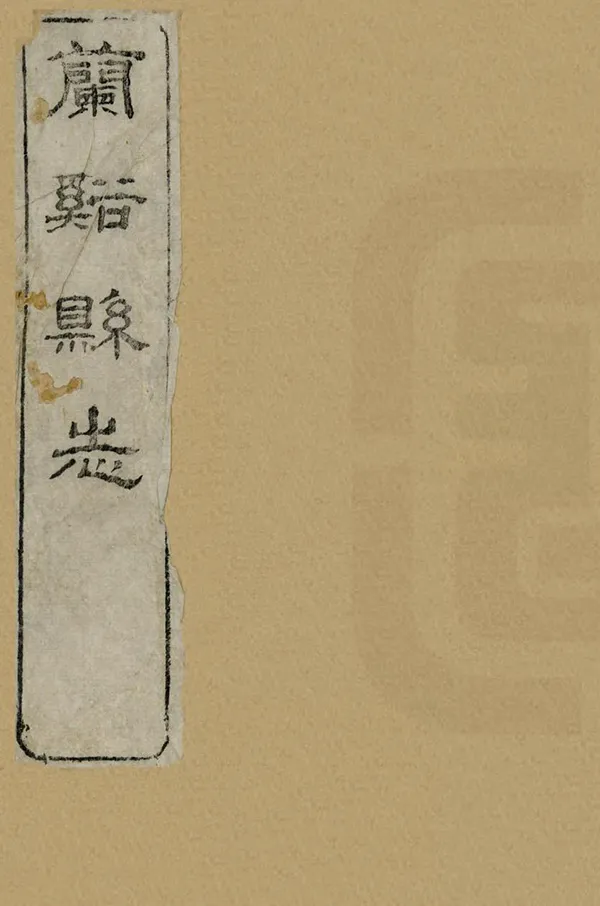 蘭谿縣志